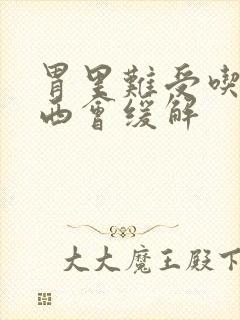 胃里難受喫
西會緩解
大大魔王殿下